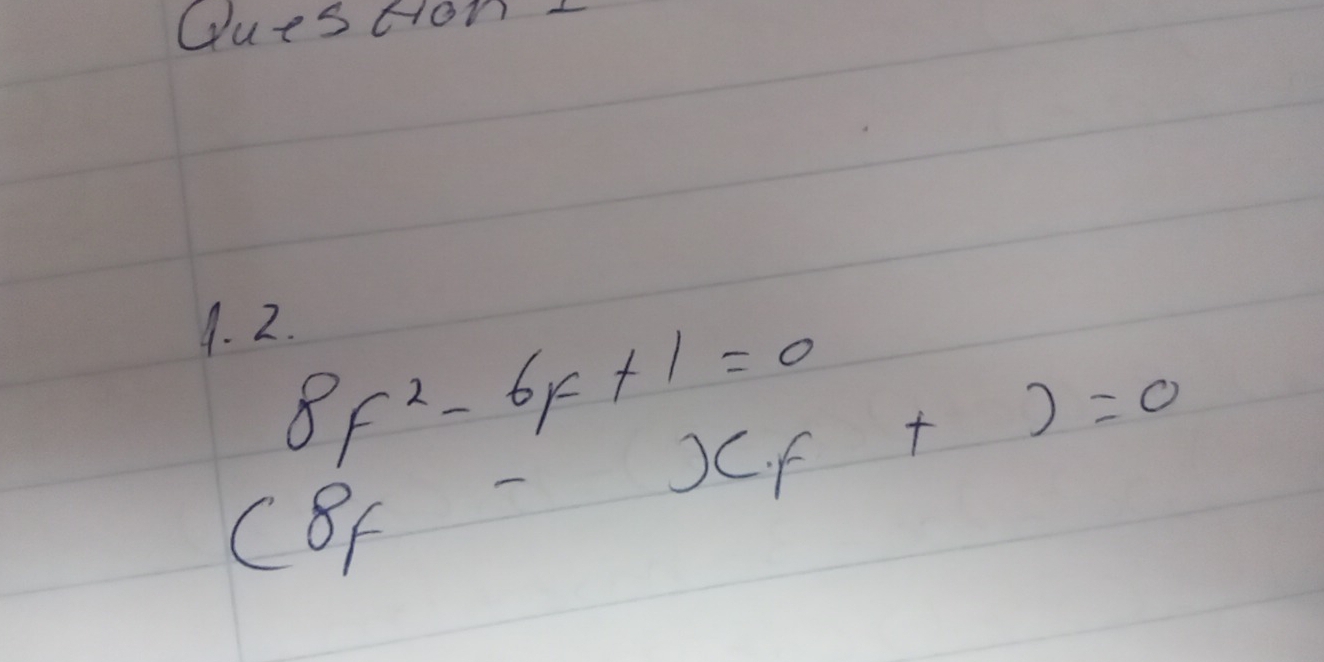 Question
1.2.
8f² - 6f + 1 = 0
(8f - )(f + ) = 0